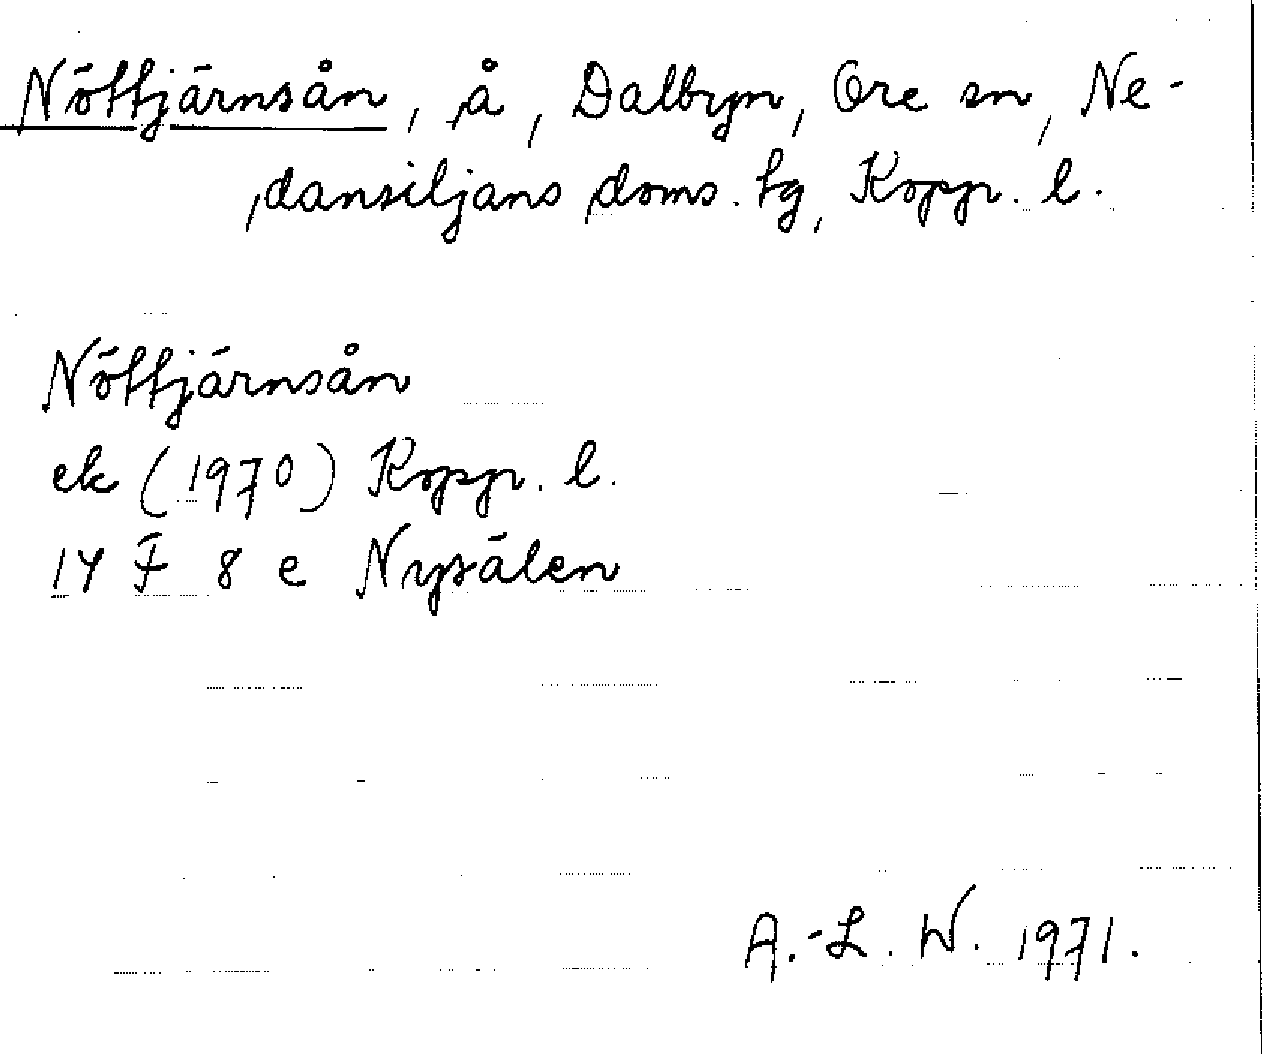 Nöttjärnsån, å, Dalbyn, Ore sn, Ne-
dansiljans doms. tg, Kopp. l.
Nöttjärnsån
ek (1970) Kopp. l.
14 F 8 e Nysälen
A.-L. W. 1971.